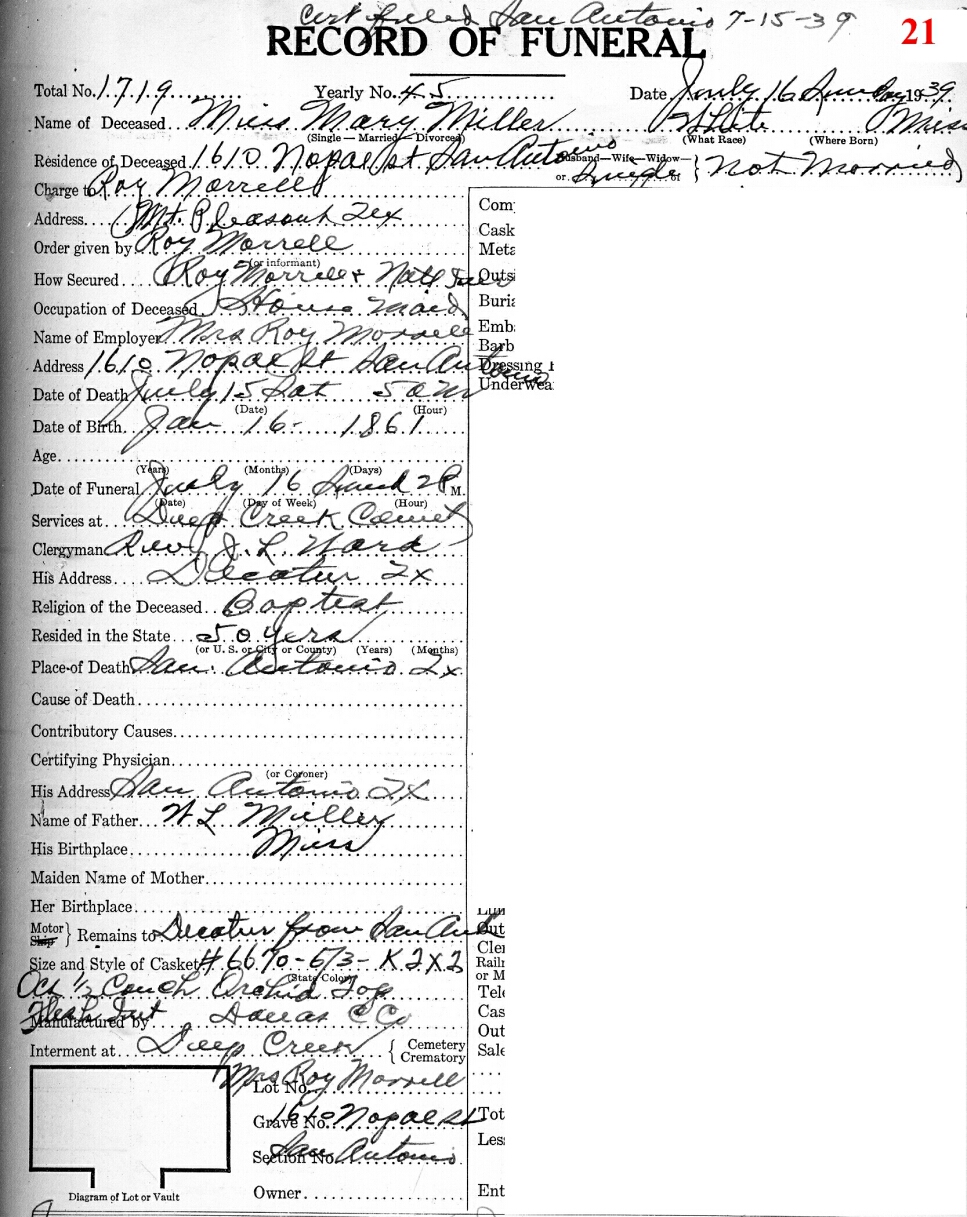 Cert filed San Antonio 7-15-39
21
RECORD OF FUNERAL
Total No. 1719 Yearly No. 45 Date July 16 Sunday 1939
Name of Deceased Miss Mary Miller White Miss
(Single — Married — Divorced) (What Race) (Where Born)
Residence of Deceased 1610 Nopal St San Antonio Husband—Wife—Widow— or Single of } Not Morried
Charge to Roy Morrell
Com
Address Mt. Pleasant Tex
Cask
Order given by Roy Morrell
Meta
(or informant)
How Secured Roy Morrell + Natl
Outsi
Occupation of Deceased House Maid
Buria
Name of Employer Mrs Roy Morrell
Emb
Barb
Address 1610 Nopal St San Antonio
Dressing
Underwea
Date of Death July 15 Sat 5 am
(Date) (Hour)
Date of Birth Jan 16 - 1861
Age
(Years) (Months) (Days)
Date of Funeral July 16 Sund 2 P M.
(Date) (Day of Week) (Hour)
Services at Deep Creek Cemet
Clergyman Rev J. L. Ward
His Address Decatur Tx
Religion of the Deceased Baptist
Resided in the State 50 yers
(or U. S. or City or County) (Years) (Months)
Place of Death San Antonio Tx
Cause of Death
Contributory Causes
Certifying Physician
(or Coroner)
His Address San Antonio TX
Name of Father W L Miller
His Birthplace Miss
Maiden Name of Mother
Her Birthplace
Motor Ship } Remains to Decatur from San Ant
Out
Cler
Size and Style of Casket # 6670-6/3- K 2X2
Railr
or M
(State Color)
Oct 1/2 Couch Orchid Top
Tele
Flesh Int
Cas
Manufactured by Dallas C Co
Out
Interment at Deep Creek { Cemetery Crematory
Sale
Mrs Roy Morrell
Lot No.
Grave No. 1610 Nopal St
Tot
Less
Section No. San Antonio
Diagram of Lot or Vault
Owner
Ent